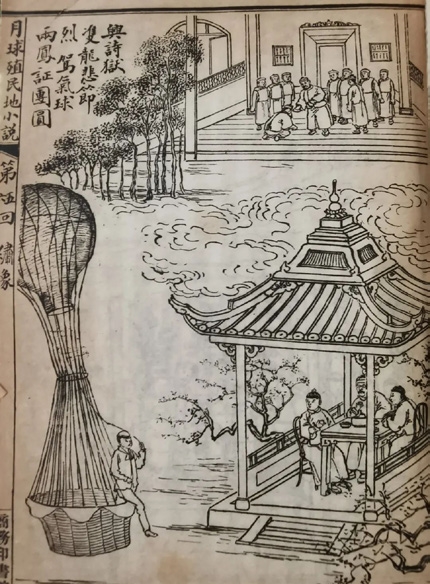 興詩獄
雙龍悲節
烈 駕氣球
兩鳳証團圓
月球殖民地小說
第伍回 繡像
商務印書